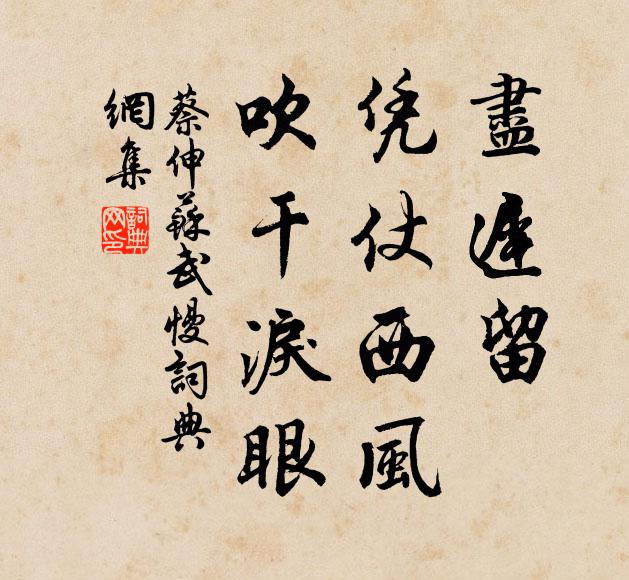 盡遲留
凭仗西風
吹干淚眼
蔡伸蘇武慢詞典
網集
詞典
网印